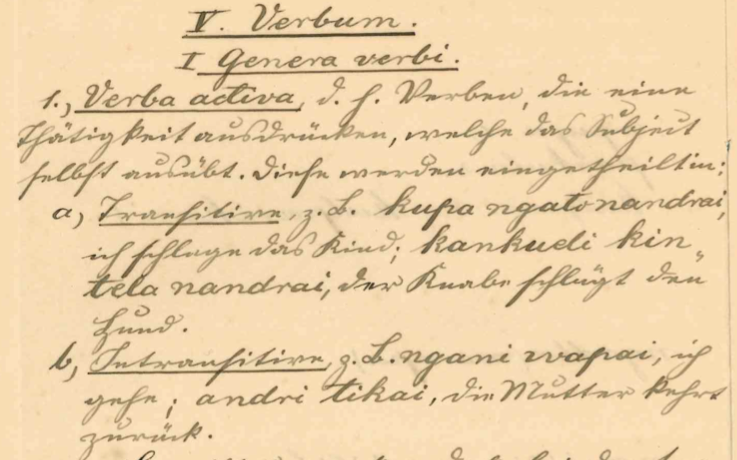 V. Verbum.
I Genera verbi.
1., Verba activa, d. h. Verben, die eine
Thätigkeit ausdrücken, welche das Subject
selbst ausübt. Diese werden eingetheilt in:
a, Transitive, z. B. kupa ngato nandrai,
ich schlage das Kind; kankueli kin
tela nandrai, der Knabe schlägt den
Hund.
b, Intransitive, z. B. ngani wapai, ich
gehe; andri tikai, die Mutter kehrt
zurück.